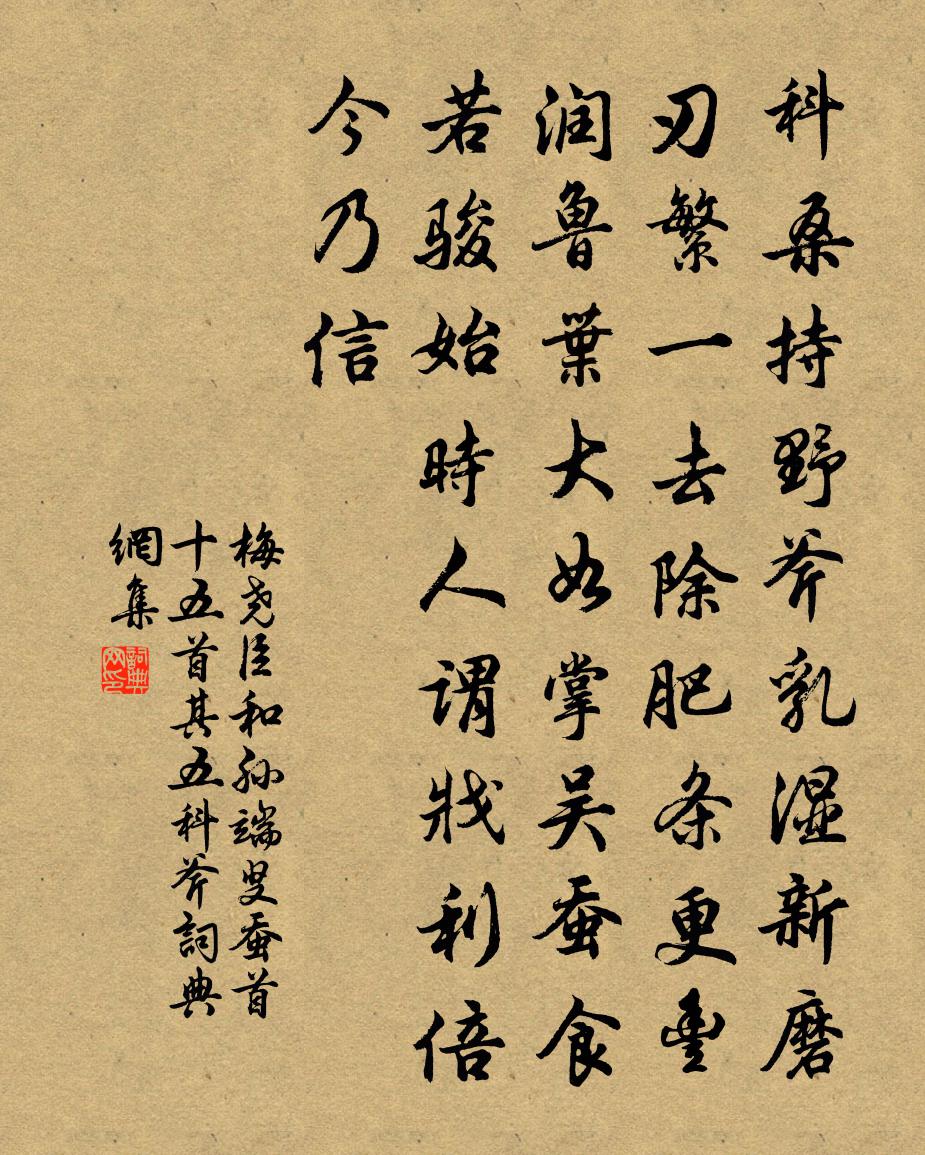 科桑持野斧乳湿新磨
刃繁一去除肥条更豊
润鲁葉大如掌吴蚕食
若骏始時人谓戕利倍
今乃信
梅尧臣和孙端叟蚕首
十五首其五科斧詞典
網集
詞典
网印